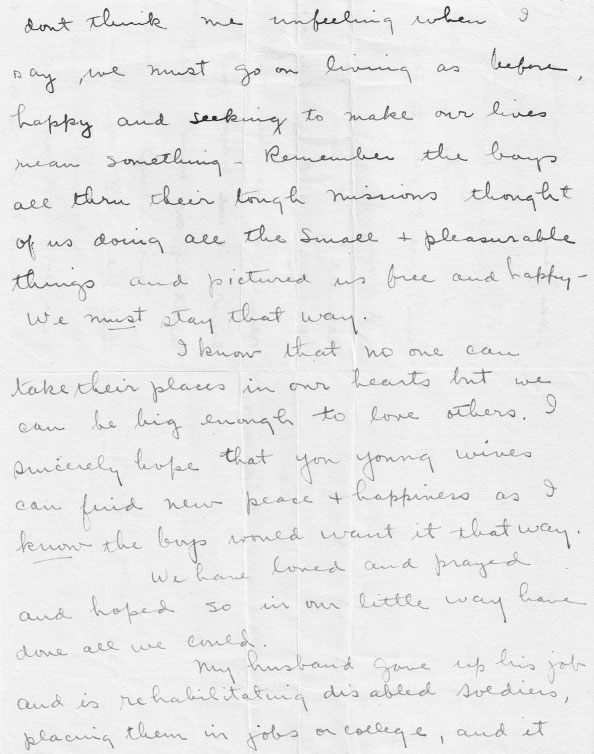 dont think me unfeeling when I
say, we must go on living as before,
happy and seeking to make our lives
mean something - Remember the boys
all thru their tough missions thought
of us doing all the small + pleasurable
things and pictured us free and happy -
We must stay that way.
I know that no one can
take their places in our hearts but we
can be big enough to love others. I
sincerely hope that you young wives
can find new peace + happiness as I
know the boys would want it that way.
We have loved and prayed
and hoped so in our little way have
done all we could.
My husband gave up his job
and is rehabilitating disabled soldiers,
placing them in jobs or college, and it